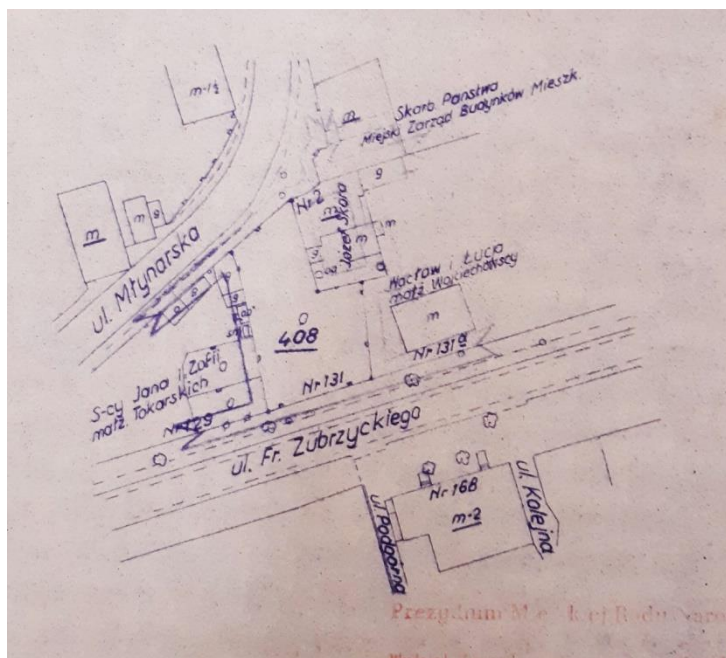 m-1½
m
Skarb. Państwa
Miejski Zarząd Budynków Mieszk.
m
m
g
g
Nr 2
m
Józef Skóra
m
m
ul. Młynarska
Wacław i Łucja
małż. Wojciechowscy
m
g
408
Nr 131 a
Nr 131
S-cy Jana i Zofii
małż. Tokarskich
Nr 129
ul. Fr. Zubrzyckiego
Nr 168
m-2
ul. Podgórna
ul. Kolejna
Prezydium